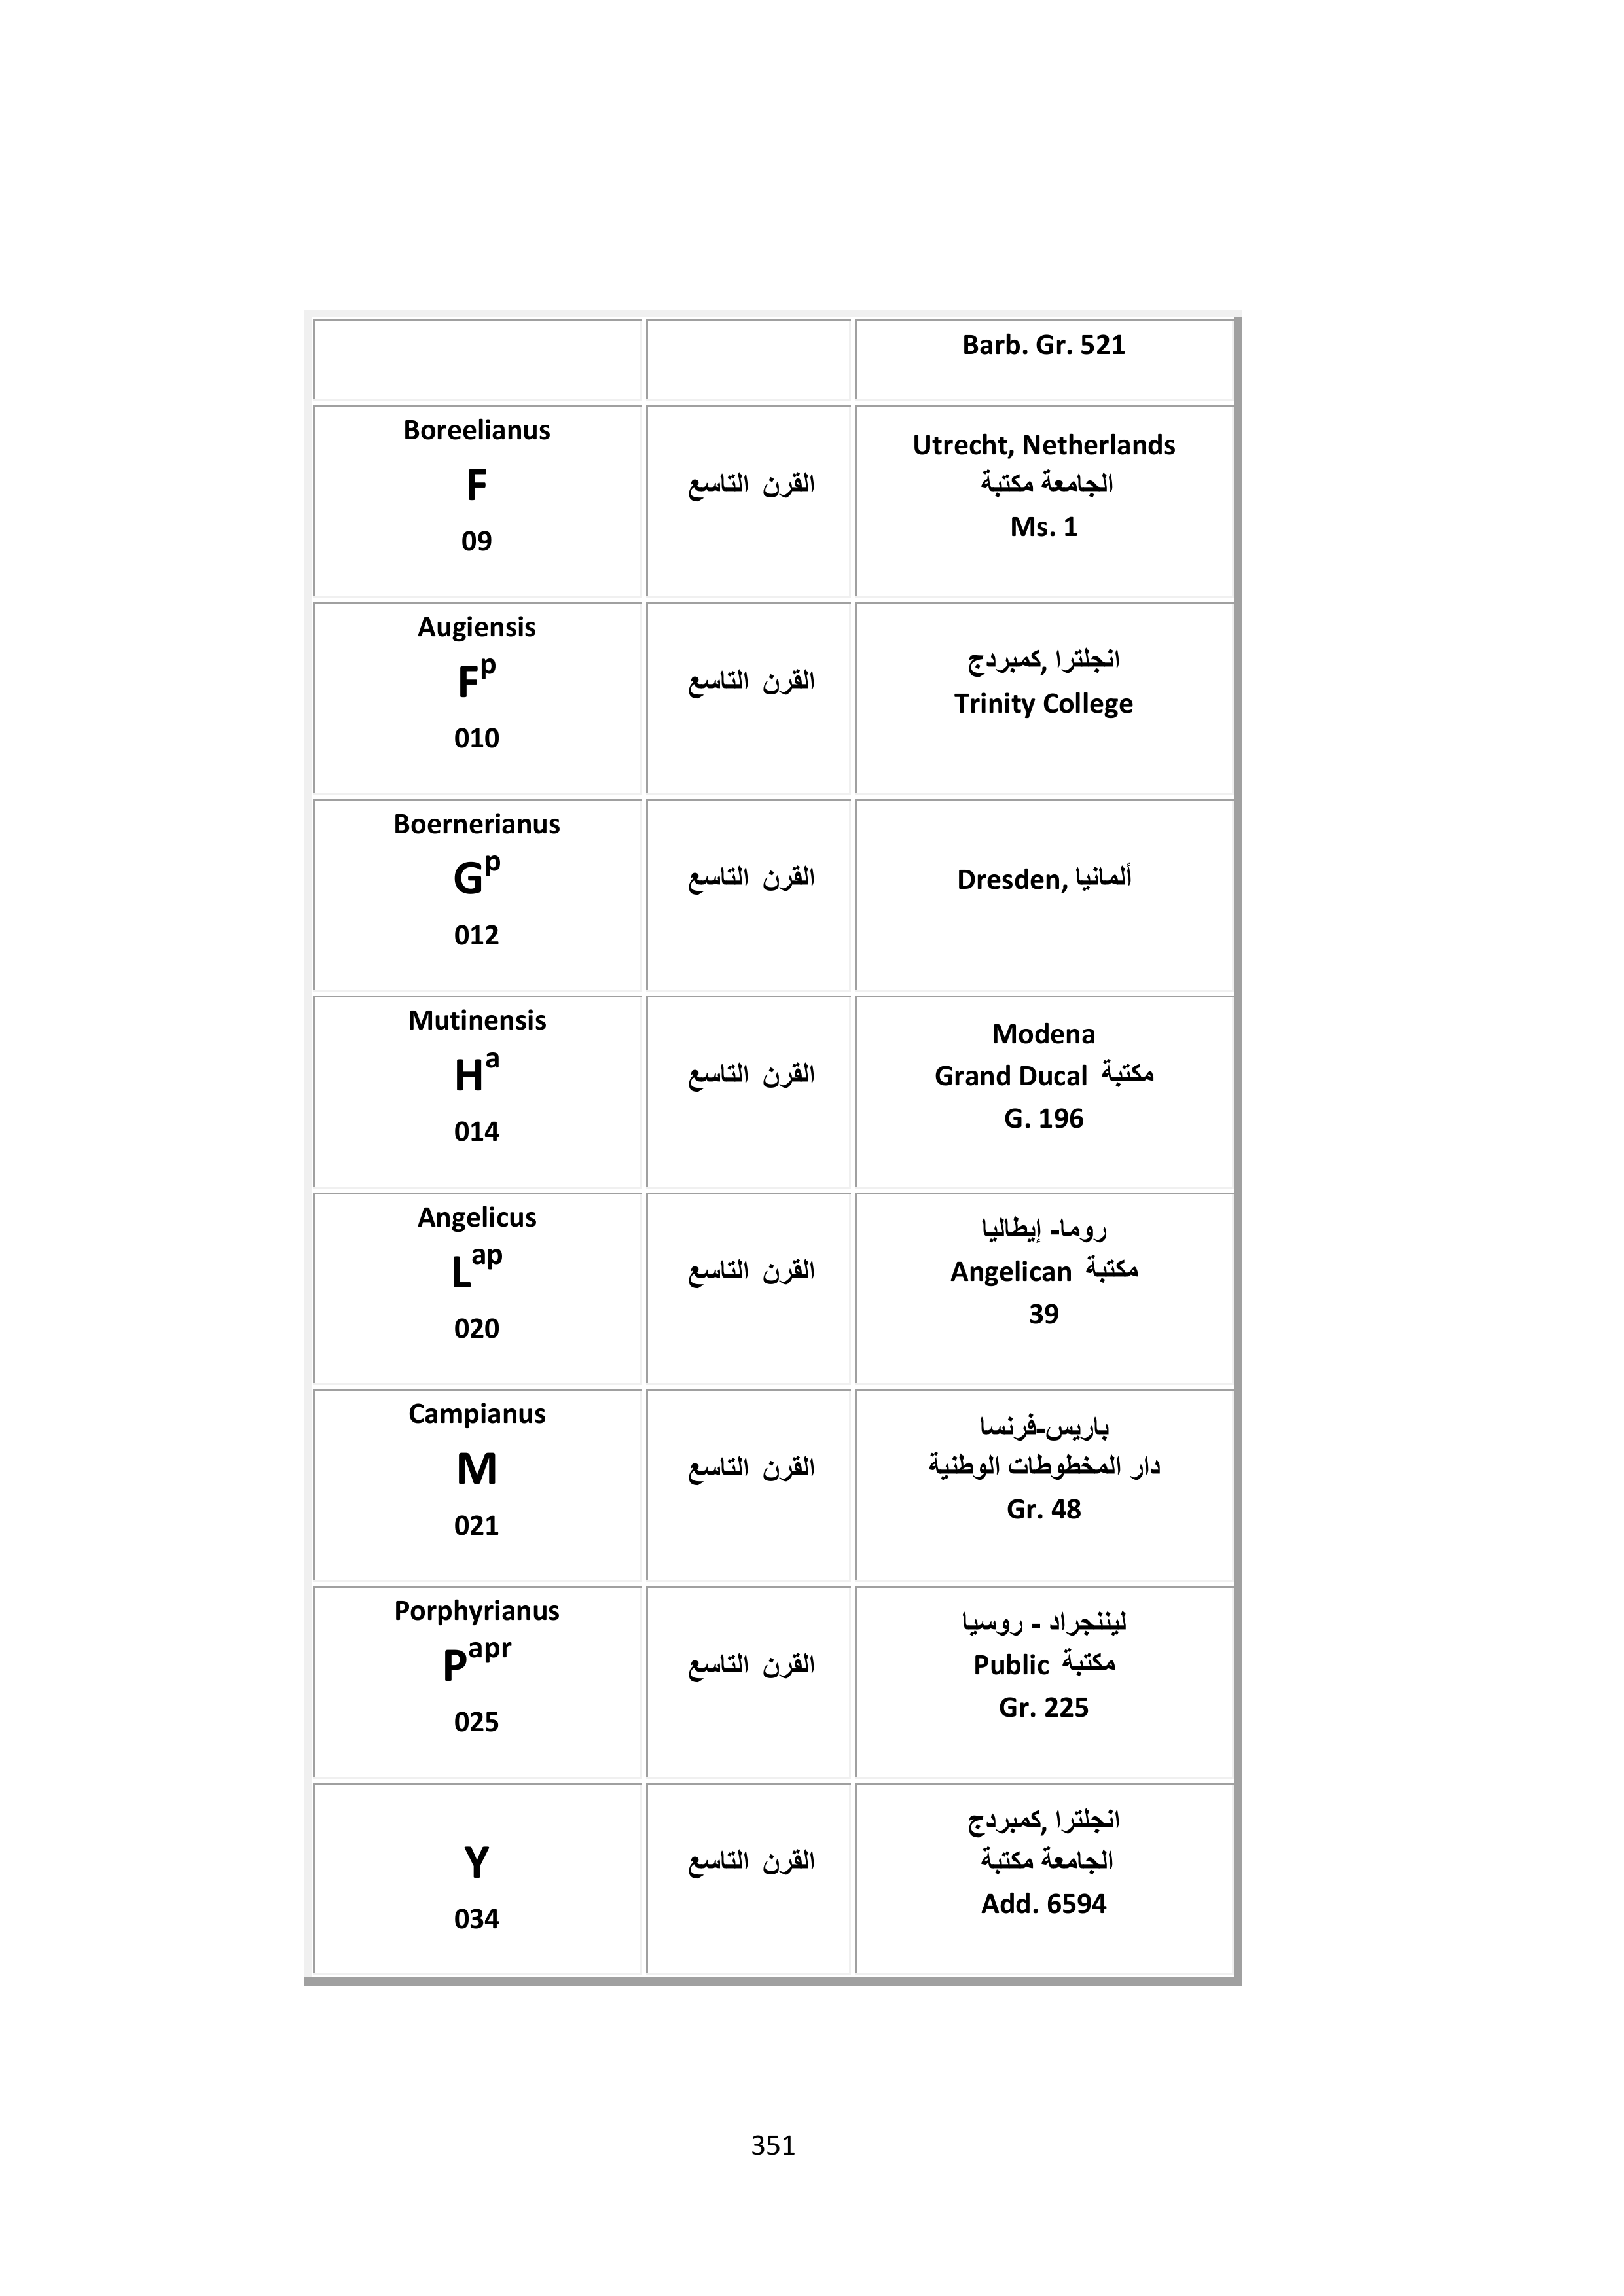 Barb. Gr. 521
Boreelianus
F
09
القرن التاسع
Utrecht, Netherlands
الجامعة مكتبة
Ms. 1
Augiensis
F^p
010
القرن التاسع
انجلترا ,كمبردج
Trinity College
Boernerianus
G^p
012
القرن التاسع
Dresden, ألمانيا
Mutinensis
H^a
014
القرن التاسع
Modena
Grand Ducal مكتبة
G. 196
Angelicus
L^ap
020
القرن التاسع
روما- إيطاليا
Angelican مكتبة
39
Campianus
M
021
القرن التاسع
باريس-فرنسا
دار المخطوطات الوطنية
Gr. 48
Porphyrianus
P^apr
025
القرن التاسع
ليننجراد - روسيا
Public مكتبة
Gr. 225
Y
034
القرن التاسع
انجلترا ,كمبردج
الجامعة مكتبة
Add. 6594
351